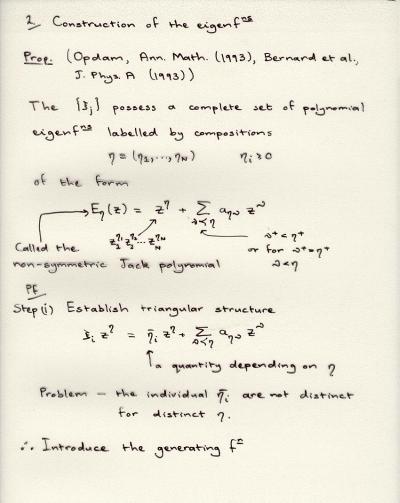 2. Construction of the eigenfⁿˢ
Prop. (Opdam, Ann. Math. (1993), Bernard et al.,
J. Phys. A (1993))
The {ξⱼ} possess a complete set of polynomial
eigenfⁿˢ labelled by compositions
η = (η₁, ..., η_N)    ηᵢ ≥ 0
of the form
E_η(z) = z^η + Σ_{ν≺η} a_{ην} z^ν
Called the    z₁^{η₁} z₂^{η₂} ... z_N^{η_N}    ν⁺ < η⁺
or for ν⁺ = η⁺
non-symmetric Jack polynomial    ν < η
Pf
Step (i) Establish triangular structure
ξᵢ z^η = η̄ᵢ z^η + Σ_{ν≺η} a_{ην} z^ν
a quantity depending on η
Problem – the individual η̄ᵢ are not distinct
for distinct η.
∴ Introduce the generating fⁿ